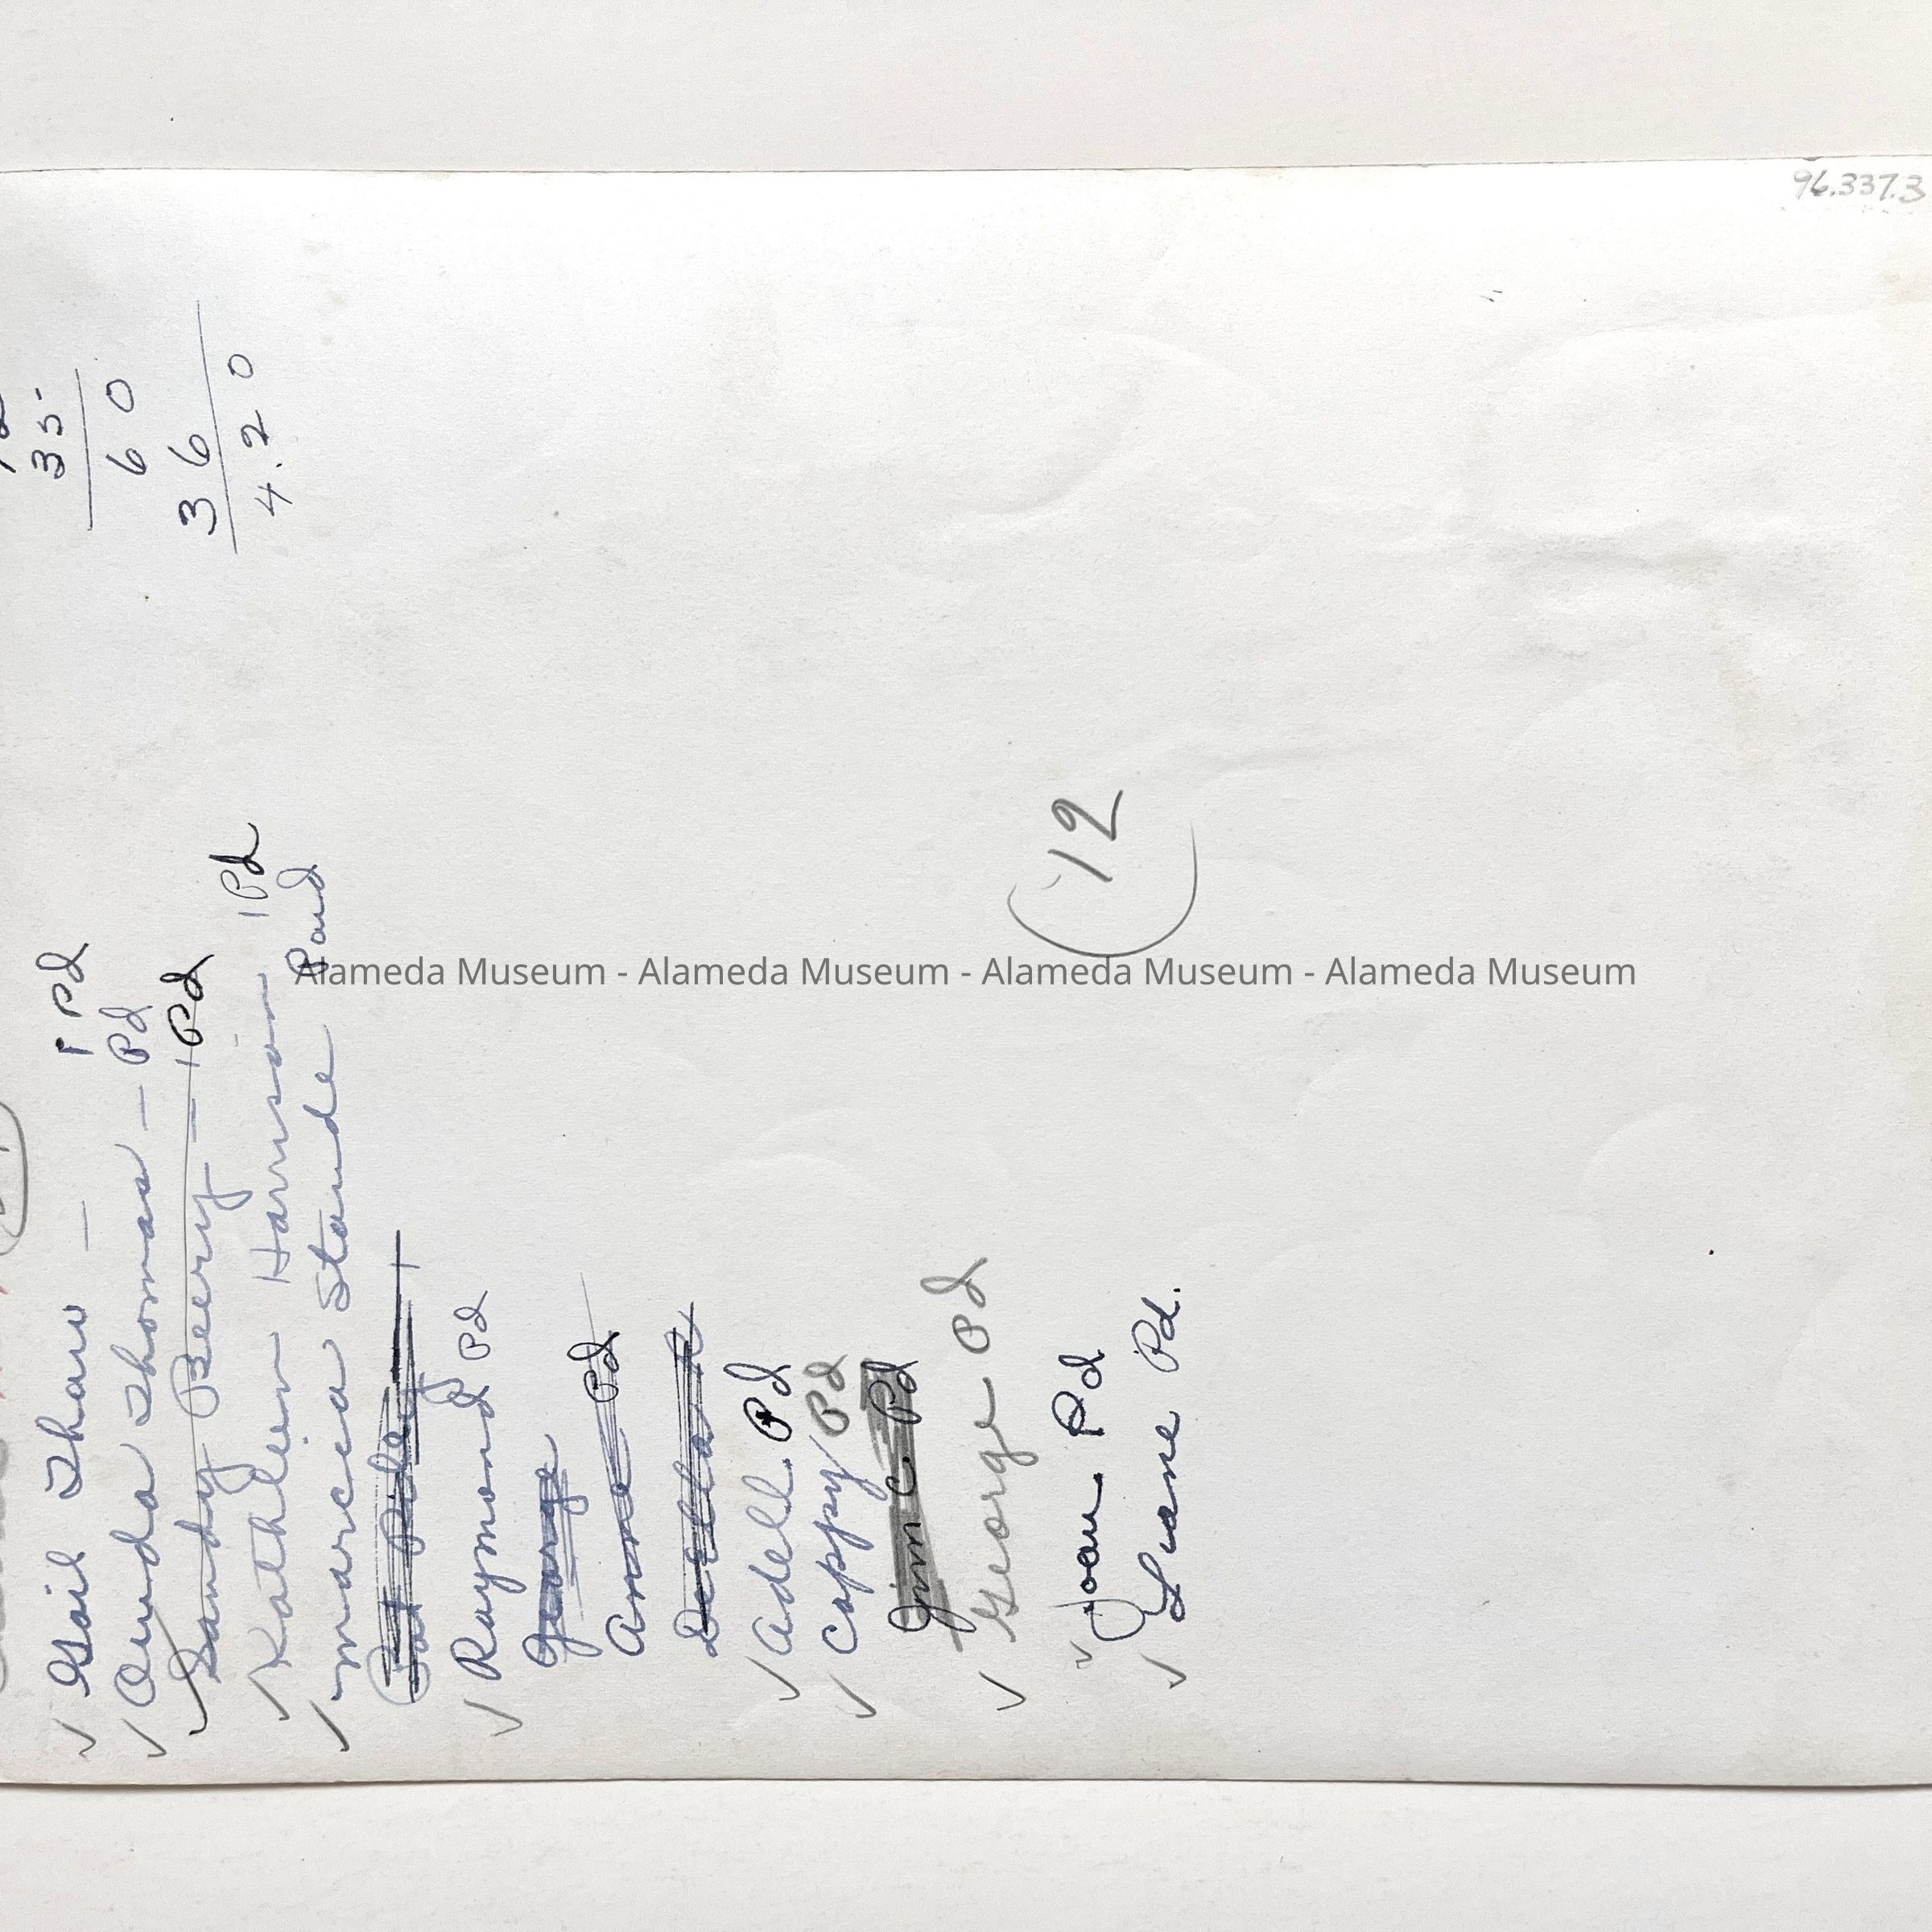 96.337.3
35
60
36
4.20
Gail Thaw — 1 Pd
Ouida Thomas — Pd
Sandy Beery — 1 Pd
Kathleen Harrison 1 Pd
Marcia Staude Paid
Raymond Pd
George
Anne Pd
Adell. Pd
Cappy Pd
Jim C Pd
George Pd
Joan. Pd
Luane Pd.
12
Alameda Museum - Alameda Museum - Alameda Museum - Alameda Museum